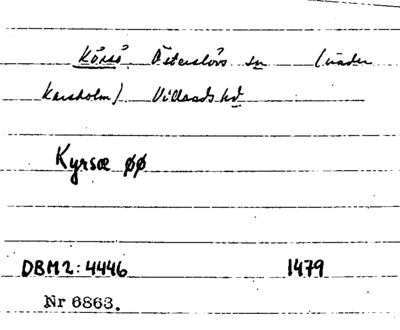 Körsö. Österslövs sn (under
Karsholm) Villands hd
Kyrsæ øø
DBM2: 4446 1479
Nr 6863.